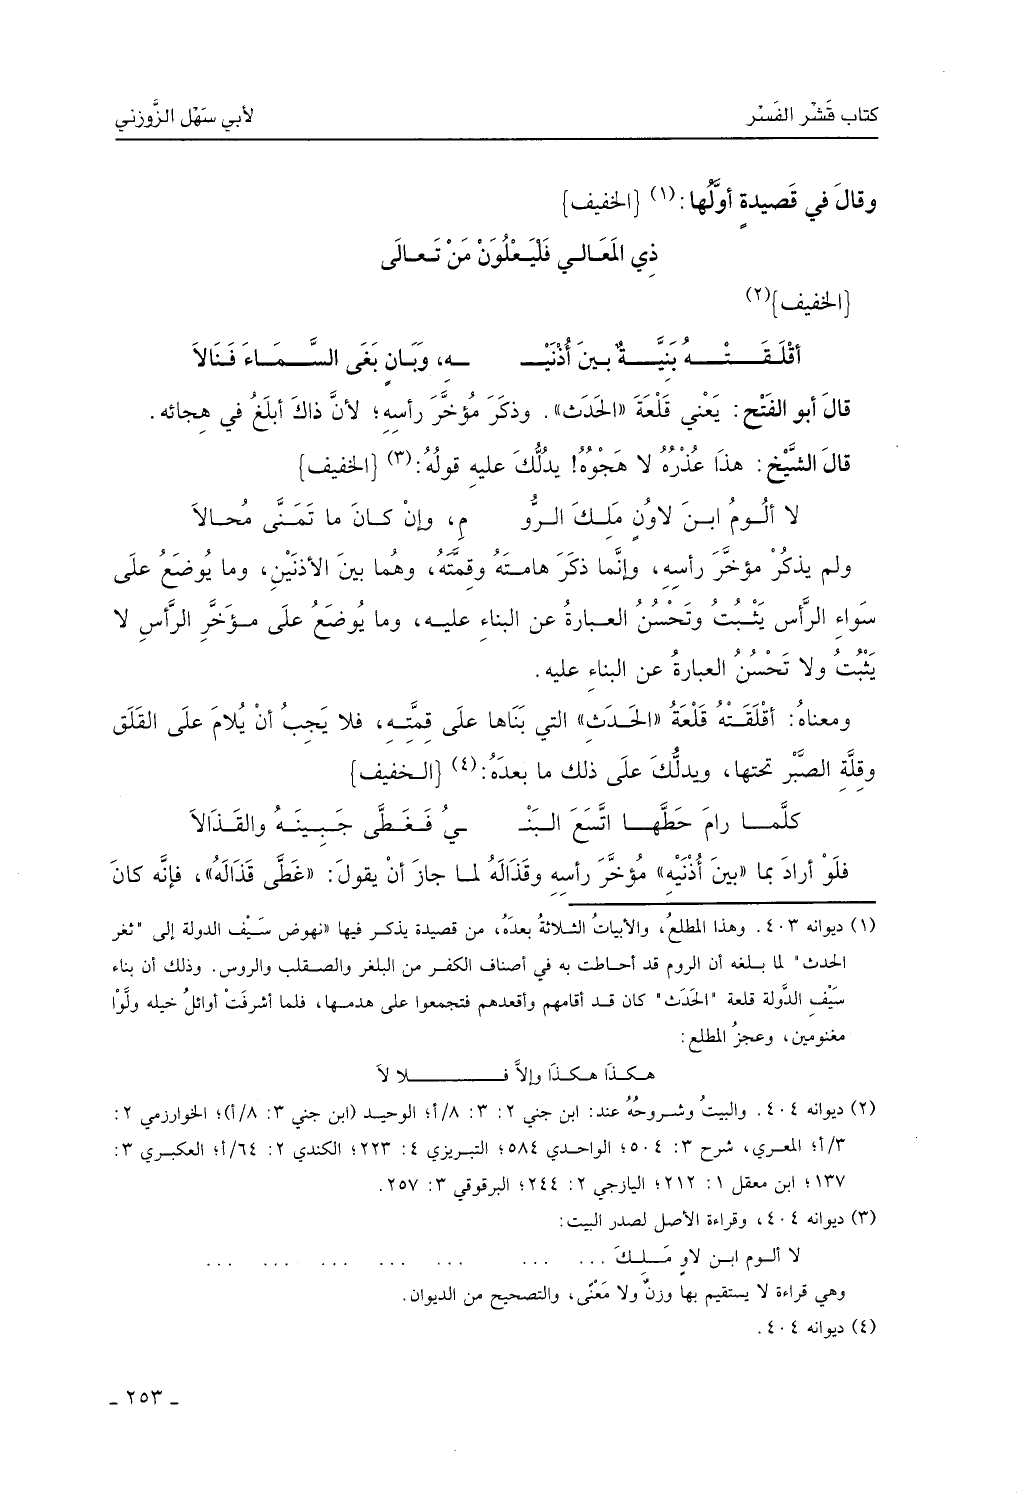 كتاب قَشْر الفَسْر لأبي سَهْل الزَّوْزني
وقالَ في قَصيدةٍ أوَّلُها:(١) [الخفيف]
ذِي المَعَالي فَلْيَعْلُوَنْ مَنْ تَعالَى
[الخفيف](٢)
أقْلَقَتْهُ بَنِيَّةٌ بينَ أُذْنَيْـ ـهِ، وَبَانٍ بَغَى السَّمَاءَ فَنَالاَ
قالَ أبو الفَتْحِ: يَعْني قَلْعَةَ «الحَدَث». وذكَرَ مُؤخَّرَ رأسِهِ؛ لأنَّ ذاكَ أبلَغُ في هجائه.
قالَ الشَّيْخُ: هذَا عُذْرُهُ لا هَجْوُهُ! يدلُّكَ عليه قولُهُ:(٣) [الخفيف]
لا ألُومُ ابنَ لاوُنٍ مَلِكَ الرُّو مِ، وإنْ كانَ ما تَمَنَّى مُحالاَ
ولم يذكُرْ مؤخَّرَ رأسِهِ، وإنَّما ذكَرَ هامتَهُ وقِمَّتَهُ، وهُما بينَ الأذنَيْنِ، وما يُوضَعُ على
سَواءِ الرَّأسِ يَثْبُتُ وتَحْسُنُ العبارةُ عن البناءِ عليهِ، وما يُوضَعُ علَى مؤخَّرِ الرَّأسِ لا
يَثْبُتُ ولا تَحْسُنُ العبارةُ عن البناءِ عليه.
ومعناهُ: أقْلَقَتْهُ قَلْعَةُ «الحَدَثِ» التي بَنَاها علَى قِمَّتِهِ، فلا يَجبُ أنْ يُلامَ علَى القَلَقِ
وقلَّةِ الصَّبْرِ تحتها، ويدلُّكَ علَى ذلك ما بعدَهُ:(٤) [الخفيف]
كلَّما رامَ حَطَّها اتَّسَعَ البَنْـ ـيُ فَغَطَّى جَبِينَهُ والقَذَالاَ
فلَوْ أرادَ بما «بينَ أُذْنَيْهِ» مُؤخَّرَ رأسِهِ وقَذَالَهُ لما جازَ أنْ يقولَ: «غَطَّى قَذَالَهُ»، فإنَّه كانَ
(١) ديوانه ٤٠٣. وهذا المطلعُ، والأبياتُ الثلاثةُ بعدَهُ، من قصيدة يذكر فيها «نهوض سَيْف الدولة إلى "ثغر
الحدث" لما بلغه أن الروم قد أحاطت به في أصناف الكفر من البلغر والصقلب والروس. وذلك أن بناء
سَيْفِ الدَّولة قلعة "الحَدَث" كان قد أقامهم وأقعدهم فتجمعوا على هدمها، فلما أشرفَتْ أوائلُ خيله ولَّوْا
مغنومين، وعجزُ المطلع:
هكذَا هكذَا وإلاَّ فلا لاَ
(٢) ديوانه ٤٠٤. والبيتُ وشروحُهُ عند: ابن جني ٢: ٣: ٨/أ؛ الوحيد (ابن جني ٣: ٨/أ)؛ الخوارزمي ٢:
٣/أ؛ المعري، شرح ٣: ٥٠٤؛ الواحدي ٥٨٤؛ التبريزي ٤: ٢٢٣؛ الكندي ٢: ٦٤/أ؛ العكبري ٣:
١٣٧؛ ابن معقل ١: ٢١٢؛ اليازجي ٢: ٢٤٤؛ البرقوقي ٣: ٢٥٧.
(٣) ديوانه ٤٠٤، وقراءة الأصل لصدر البيت:
لا ألوم ابن لاوٍ مَلِكَ ... ... ... ... ... ... ... ...
وهي قراءة لا يستقيم بها وزنٌ ولا مَعْنًى، والتصحيح من الديوان.
(٤) ديوانه ٤٠٤.
ـ ٢٥٣ ـ